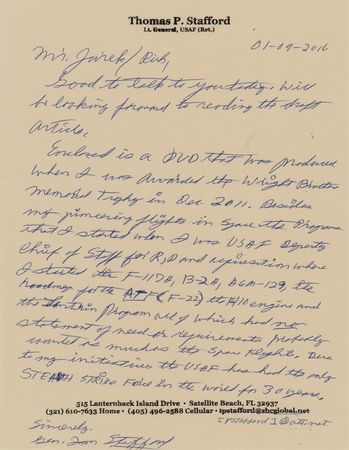 Thomas P. Stafford
Lt. General, USAF (Ret.)
01-09-2016
Mr. Jurek/Rick,
Good to talk to you today. Will
be looking forward to reading the draft
article.
Enclosed is a DVD that was produced
when I was awarded the Wright Brothers
Memorial Trophy in Dec 2011. Besides
my pioneering flights in space the Programs
that I started when I was USAF Deputy
Chief of Staff for R,D and acquisition where
I started the F-117A, B-2A, AGM-129, the
roadmap for the ATF (F-22) the F110 engine and
the Program all of which had no
statement of need or requirements probably
counted as much as the Space flights. Due
to my initiatives the USAF has had the only
STEALTH STRIKE Force in the world for 30 years.
515 Lanternback Island Drive • Satellite Beach, FL 32937
(321) 610-7633 Home • (405) 496-2588 Cellular • tpstafford@sbcglobal.net
Sincerely,
Gen. Tom Stafford